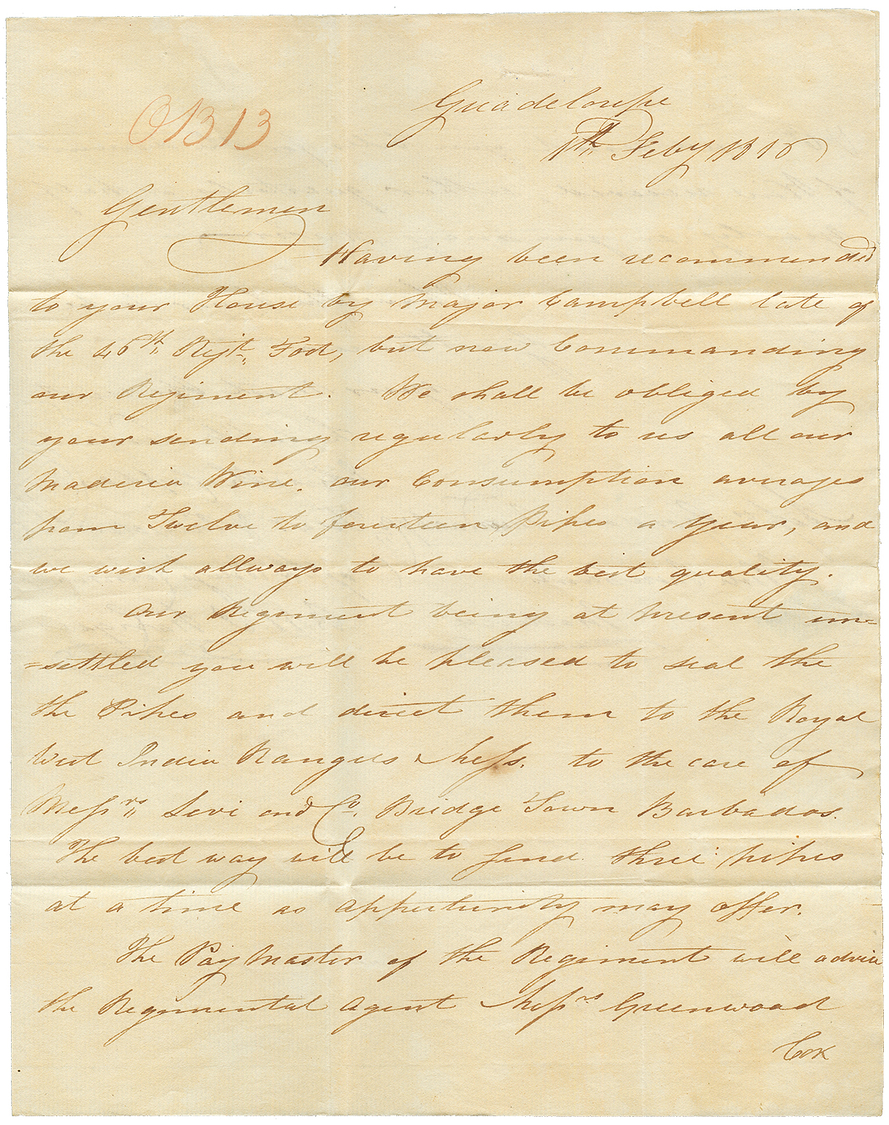 OB 13
Guadeloupe
1th Feby 1816
Gentlemen
Having been recommended
to your House by Major Campbell late of
the 46th Rejt. Foot, but now Commanding
our Rejiment. We shall be obliged by
your sending regularly to us all our
Maderia Wine, our Consumption averages
from Twelve to fourteen Pipes a year, and
we wish allways to have the best quality.
Our Regiment being at present un=
=settled you will be pleased to seal the
the Pipes and direct them to the Royal
West India Rangers Mess. to the care of
Messrs. Levi and Co. Bridge Town Barbados.
The best way will be to send three pipes
at a time as oppertunity may offer.
The Pay Master of the Regiment will advise
the Regimental Agent Messrs Greenwood
Cox